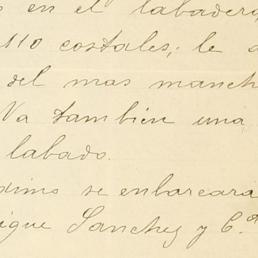 en el labadero
110 costales; le
del mas manch
Va también una
labado.
se enbarcara
Sanchez y C.a